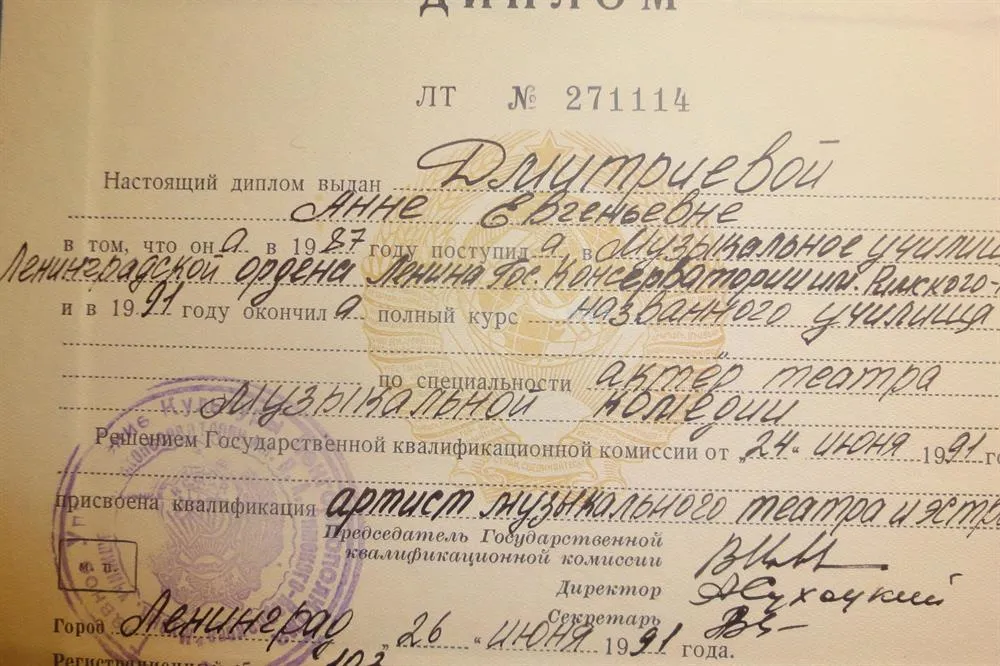 ДИПЛОМ
ЛТ № 271114
Настоящий диплом выдан Дмитриевой
Анне Евгеньевне
в том, что она в 1987 году поступила в Музыкальное училищ
Ленинградской ордена Ленина Гос. Консерватории им. Римского-
и в 1991 году окончила полный курс названного училища
по специальности актёр театра
музыкальной комедии
Решением Государственной квалификационной комиссии от „24“ июня 1991 го
присвоена квалификация артист музыкального театра и эстр
Председатель Государственной
квалификационной комиссии
Директор АСухоцкий
Секретарь
М. П.
Город Ленинград „26“ июня 1991 года.
Регистрационный 103